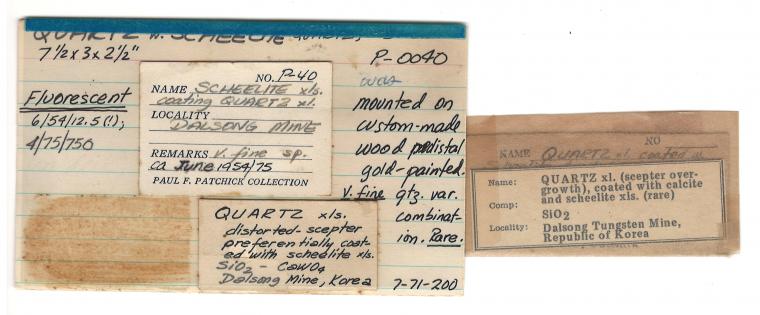 QUARTZ w. SCHEELITE
7 1/2 x 3 x 2 1/2"
P-0040
Fluorescent
6/54/12.5 (!);
4/75/750
mounted on
custom-made
wood pedistal
gold-painted.
v. fine qtz. var.
combinat-
ion. Rare.
7-71-200
NO. P-40
NAME SCHEELITE xls.
coating QUARTZ xl.
LOCALITY
DALSONG MINE
REMARKS v. fine sp.
ca June 1954/75
PAUL F. PATCHICK COLLECTION
QUARTZ xls.
distorted-scepter
preferentially coat-
ed with scheelite xls.
SiO2 - CaWO4
Dalsong Mine, Korea
NO
NAME QUARTZ xl coated w
Name: QUARTZ xl. (scepter over-
growth), coated with calcite
and scheelite xls. (rare)
Comp: SiO2
Locality: Dalsong Tungsten Mine,
Republic of Korea